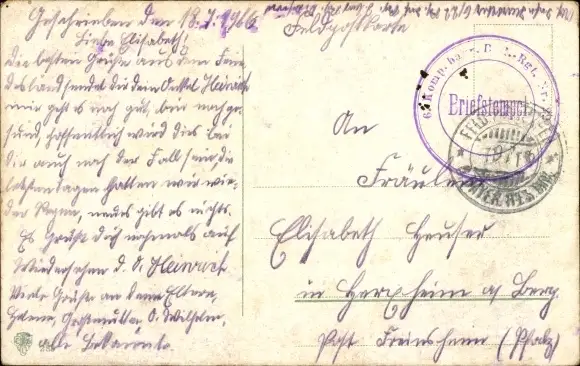 Geschrieben den 18.7.1916
Liebe Elisabeth!
Die besten Grüße aus dem Feindesland sendet dir dein Onkel Heinrich
mir geht es noch gut, bin noch gesund, hoffentlich wird dies bei
dir auch noch der Fall sein die
letzten Tagen hatten wir wieder Regen, neues gibt es nichts.
Es Grüßt dich nochmals auf
Wiedersehen d. O. Heinrich
Viele Grüße an deine Eltern,
Großmutter, O. Wilhelm,
alle Bekannte
Feldpostkarte
6. Komp. bayr. Rgt.
Briefstempel
An
Fräulein
Elisabeth Heuser
in Herxheim a/ Berg
Post Freinsheim (Pfalz)